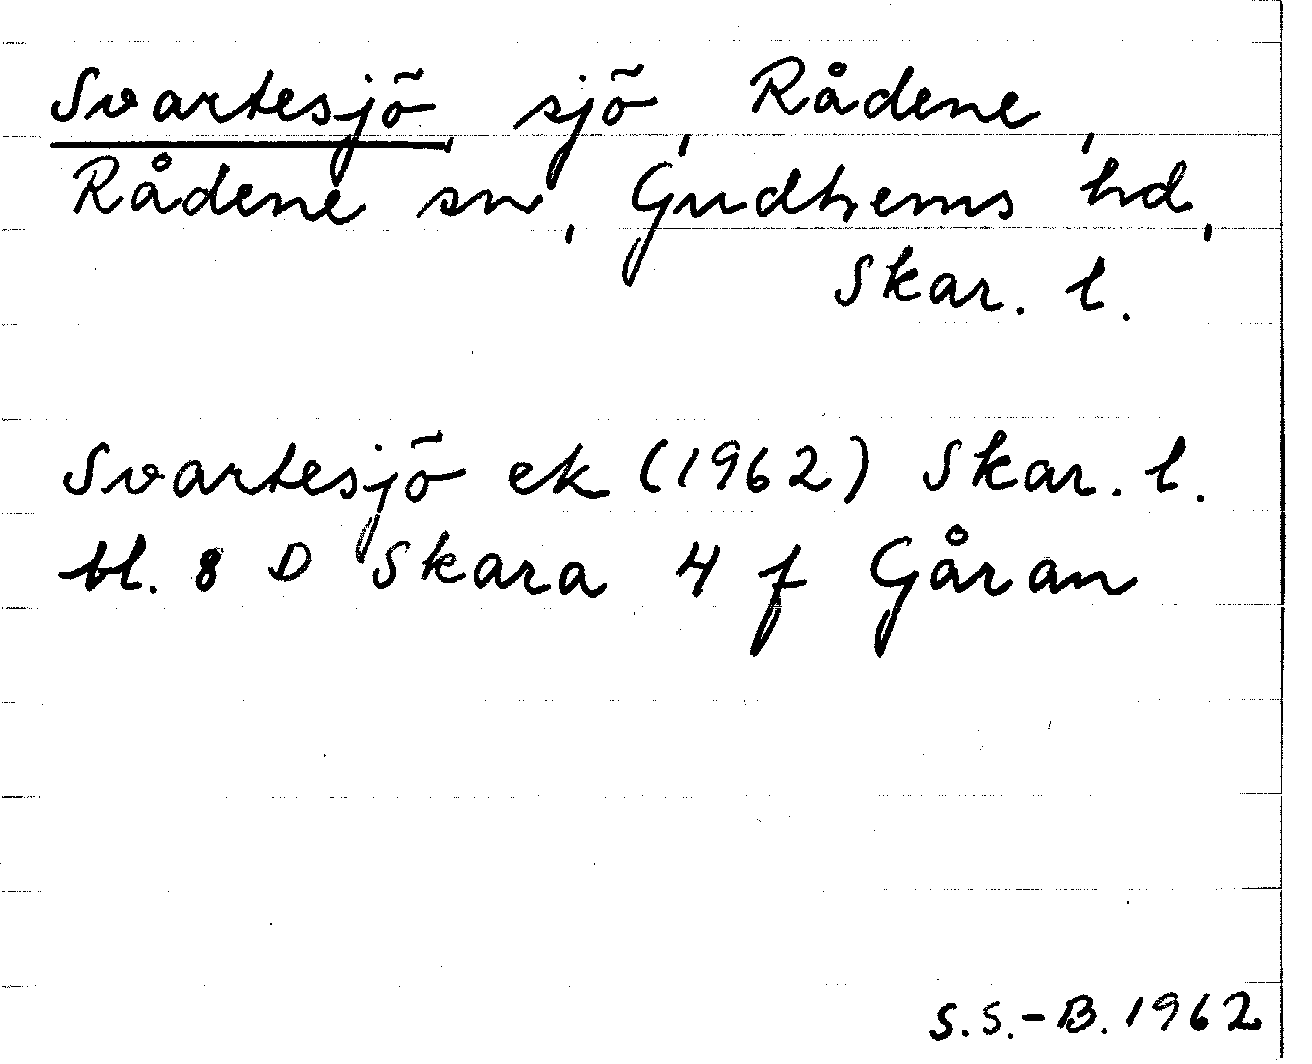 Svartesjö, sjö, Rådene,
Rådene sn, Gudhems hd,
Skar. l.
Svartesjö ek (1962) Skar. l.
bl. 8 D Skara 4 f Gåran
S.S.-B. 1962